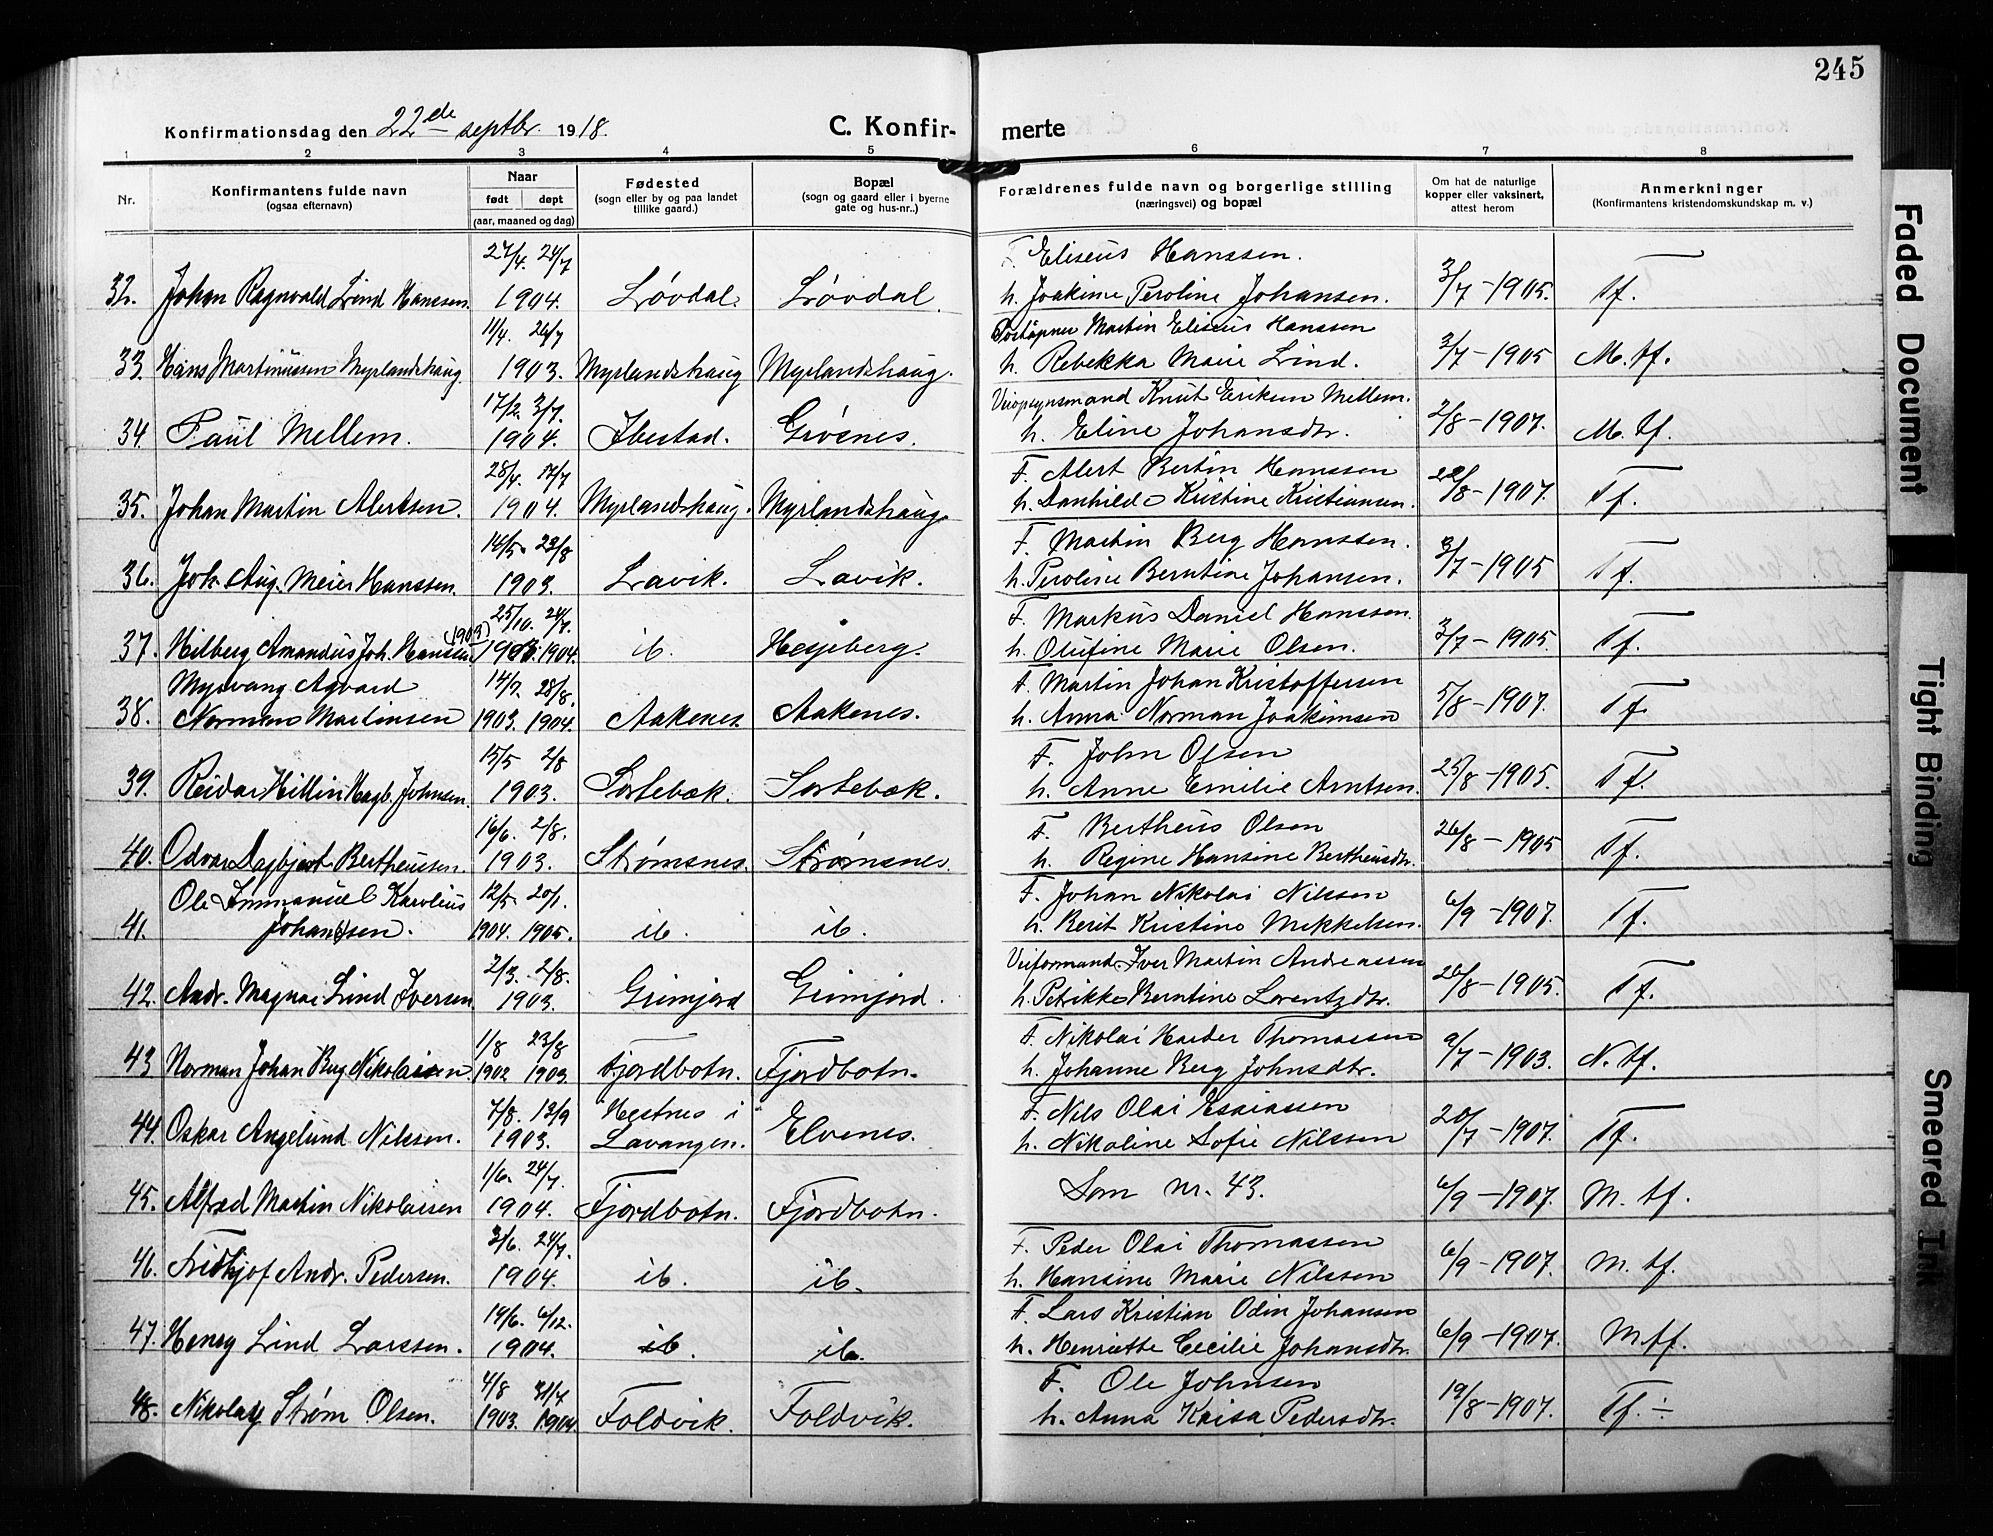 245
Konfirmationsdag den 22de septbr. 1918.
C. Konfir- merte
1 2 3 4 5 6 7 8
Nr.
Konfirmantens fulde navn
(ogsaa efternavn)
Naar
født døpt
(aar, maaned og dag)
Fødested
(sogn eller by og paa landet
tillike gaard.)
Bopæl
(sogn og gaard eller i byerne
gate og hus-nr..)
Forældrenes fulde navn og borgerlige stilling
(næringsvei) og bopæl
Om hat de naturlige
kopper eller vaksinert,
attest herom
Anmerkninger
(Konfirmantens kristendomskundskap m. v.)
27/4. 24/7 F. Eliseus Hanssen.
32. Johan Ragnvald Lind Hanssen. 1904. Løvdal. Løvdal. h. Joakime Peroline Johansen. 3/7-1905. Tf.
11/4. 26/7 Poståpner Martin Eliseus Hanssen
33. Hans Martinussen Myrlandshaug 1903. Myrlandshaug Myrlandshaug. h. Rebekka Marie Lind. 3/7-1905 M. tf.
17/2. 3/7. Veiopsynsmand Knut Eriksen Mellem.
34. Paul Mellem. 1904. Ibestad. Grøsnes. h. Eline Johansdtr. 2/8-1907. M. tf.
28/4. 17/7 F. Alert Bertin Hanssen
35. Johan Martin Alertsen. 1904. Myrlandshaug. Myrlandshaug h. Danhilde Kristine Kristiansen. 22/8-1907. Tf.
14/5. 23/8 F. Martin Berg Hanssen.
36. Joh. Aug. Meier Hanssen. 1903. Lavik. Lavik. h. Peroline Berntine Johansen. 3/7-1905 Tf.
25/10. 24/7. F. Markus Daniel Hanssen.
37. Hilberg Amandus Joh. Hanssen (1903) 1903. 1904. ib. Hesjeberg. h. Olufine Marie Olsen. 3/7-1905. Tf.
Mydvang Agvard 14/7. 28/8. F. Martin Johan Kristoffersen
38. Norman Martinsen 1903. 1904. Aakenes Aakenes. h. Anna Norman Joakimsen 5/8-1907. Tf.
15/5 2/8 F. John Olsen
39. Reidar Hillin Hagb. Johnsen. 1903. Sortebæk. Sortebæk. h. Anne Emilie Arntsen. 25/8-1905. Tf.
16/6. 2/8. F. Bertheus Olsen
40. Odvar Dagbjart Bertheussen. 1903. Strømsnes. Strømsnes. h. Regine Hansine Bertheusdtr. 26/8-1905 Tf.
Ole Emmanuel Karolius 12/5. 20/1. F. Johan Nikolai Nilssen
41. Johansen. 1904. 1905. ib. ib. h. Berit Kristine Mikkelsen. 6/9-1907. Tf.
2/3. 2/8. Veiformand Iver Martin Andreassen
42. Andr. Magnar Lind Iversen 1903. Grimjord Grimjord. h. Petrikke Berntine Lorentzdtr. 26/8-1905. Tf.
1/8 23/8 F. Nikolai Harder Thomassen
43 Norman Johan Berg Nikolaisen 1902 1903. Fjordbotn. Fjordbotn. h. Johanne Berg Johnsdtr. 9/7-1903. N. tf.
7/8. 13/9 Hestnes i F. Nils Olai Esaiassen
44. Oskar Angelund Nilssen. 1903. Lavangen. Elvenes. h. Nikoline Sofie Nilssen 20/7-1907. Tf.
1/6. 24/7.
45. Alfred Martin Nikolaisen 1904. Fjordbotn. Fjordbotn. Som nr. 43. 6/9-1907. M. tf.
3/6. 24/7. F. Peder Olai Thomassen
46. Fridtjof Andr. Pedersen. 1904. ib. ib. h. Hansine Marie Nilssen 6/9-1907. M. tf.
19/6. 6/12. F. Lars Kristian Odin Johansen
47. Henry Lind Larssen. 1904. ib. ib. h. Henriette Cecilie Johansdtr. 6/9-1907. M. tf.
4/8 31/7 F. Ole Johnsen
48. Nikolay Strøm Olsen. 1903. 1904. Foldvik. Foldvik. h. Anna Kaisa Pedersdtr. 19/8-1907. Tf. ÷
Faded Document
Tight Binding
Smeared Ink